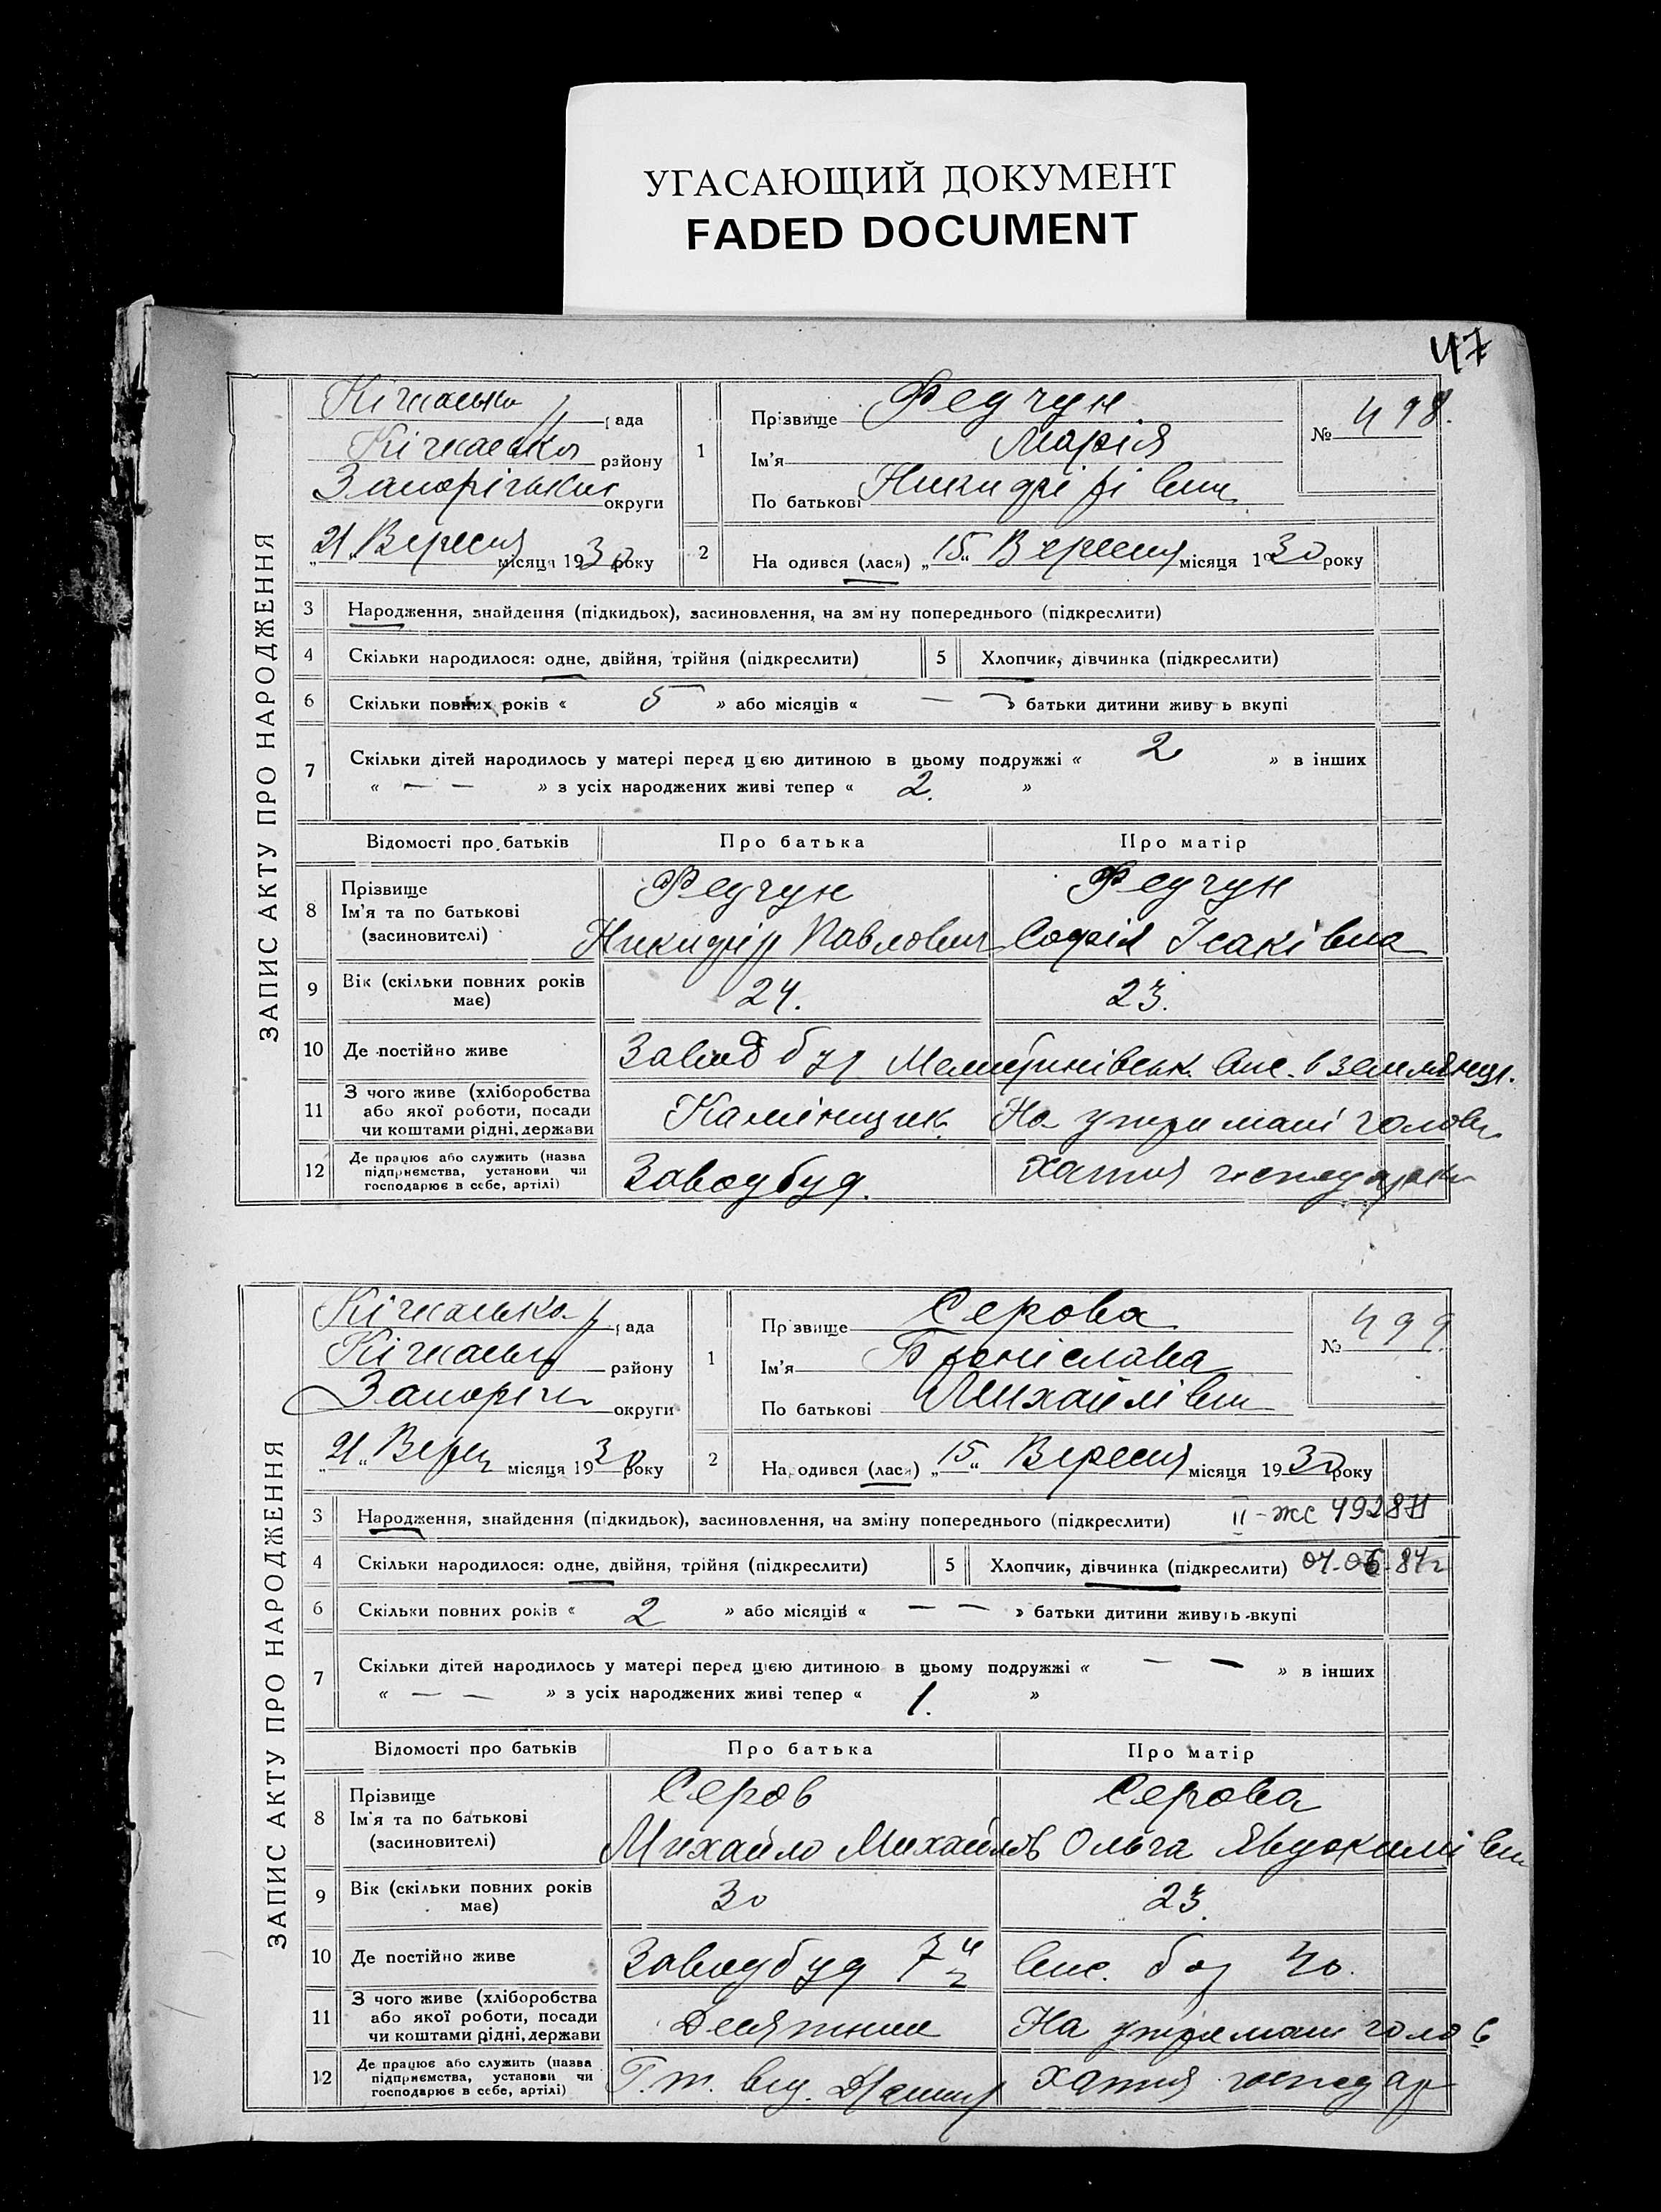 УГАСАЮЩИЙ ДОКУМЕНТ
FADED DOCUMENT
47
ЗАПИС АКТУ ПРО НАРОДЖЕННЯ
Кічкаська рада
Кічкаська району
Запорізьк округи
„21 Вересня місяця 1930 року
1 Прізвище Федчун
Ім'я Марія
По батькові
№ 498.
2 На одився (лася) „15“ Вересня місяця 1930 року
3 Народження, знайдення (підкидьох), засиновлення, на зміну попереднього (підкреслити)
4 Скільки народилося: одне, двійня, трійня (підкреслити) 5 Хлопчик, дівчинка (підкреслити)
6 Скільки повних років « 5 » або місяців « — » батьки дитини живу ь вкупі
7 Скільки дітей народилось у матері перед цією дитиною в цьому подружжі « 2 » в інших
« — — » з усіх народжених живі тепер « 2. »
Відомості про батьків Про батька Про матір
8 Прізвище Федчун Федчун
Ім'я та по батькові
(засновителі) Павлович Софія Ісаківна
9 Вік (скільки повних років
має) 24. 23.
10 Де постійно живе Завод буд в землянці.
11 З чого живе (хліборобства
або якої роботи, посади
чи коштами рідні, держави Камінщик На утримані голови
12 Де працює або служить (назва
підприємства, установи чи
господарює в себе, артілі) Заводбуд. хатня господарка
ЗАПИС АКТУ ПРО НАРОДЖЕННЯ
Кічкаська рада
Кічкаськ району
Запоріз округи
„21“ Верес місяця 1930 року
1 Прізвище Серова
Ім'я Броніслава
По батькові Михайлівна
№ 499
2 На одився (лася) „15“ Вересня місяця 1930 року
3 Народження, знайдення (підкидьок), засиновлення, на зміну попереднього (підкреслити) II-ЖС
4 Скільки народилося: одне, двійня, трійня (підкреслити) 5 Хлопчик, дівчинка (підкреслити)
6 Скільки повних років « 2 » або місяців « — — » батьки дитини живуть вкупі
7 Скільки дітей народилось у матері перед цією дитиною в цьому подружжі « — — » в інших
« — — » з усіх народжених живі тепер « 1. »
Відомості про батьків Про батька Про матір
8 Прізвище Серов Серова
Ім'я та по батькові
(засиновителі) Михайло Михайлов Ольга Явдокимівна
9 Вік (скільки повних років
має) 30 23.
10 Де постійно живе Заводбуд 40.
11 З чого живе (хліборобства
або якої роботи, посади
чи коштами рідні, держави Десятник На утримані голов
12 Де працює або служить (назва
підприємства, установи чи
господарює в себе, артілі) хатня господар